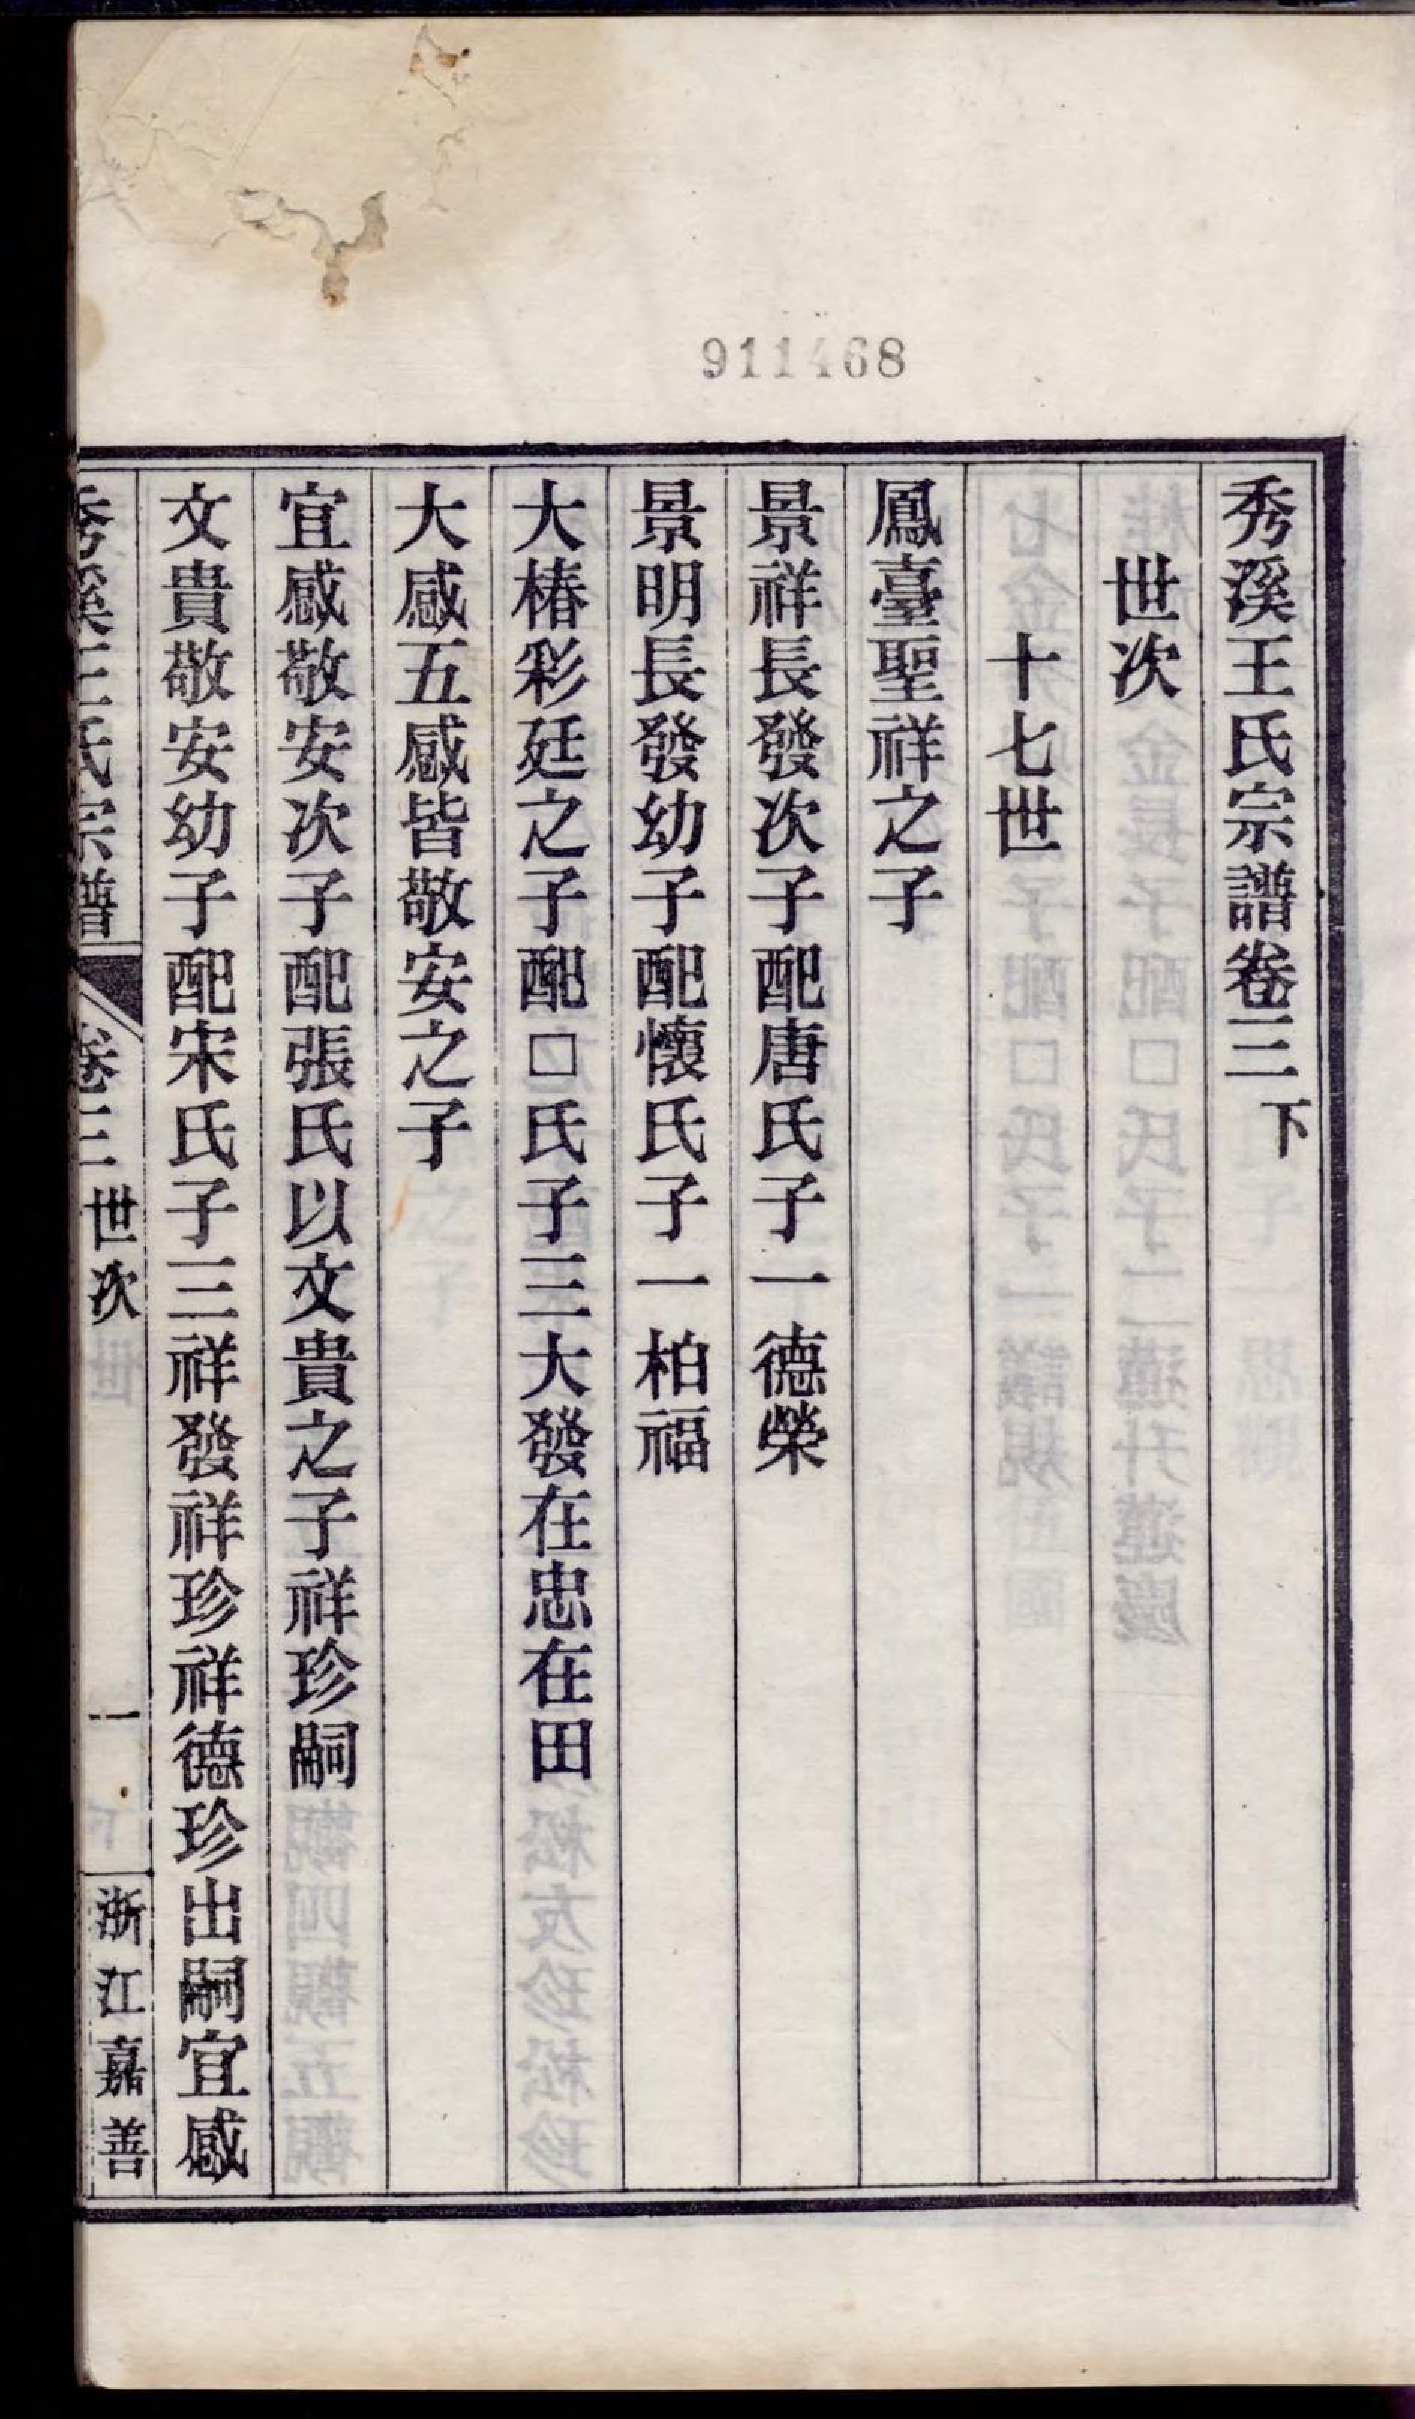 911468
秀溪王氏宗譜卷三下
世次
十七世
鳳臺聖祥之子
景祥長發次子配唐氏子一德榮
景明長發幼子配懷氏子一柏福
大椿彩廷之子配□氏子三大發在忠在田
大感五感皆敬安之子
宜感敬安次子配張氏以文貴之子祥珍嗣
文貴敬安幼子配宋氏子三祥發祥珍祥德珍出嗣宜感
秀溪王氏宗譜 卷三 世次 一 浙江嘉善